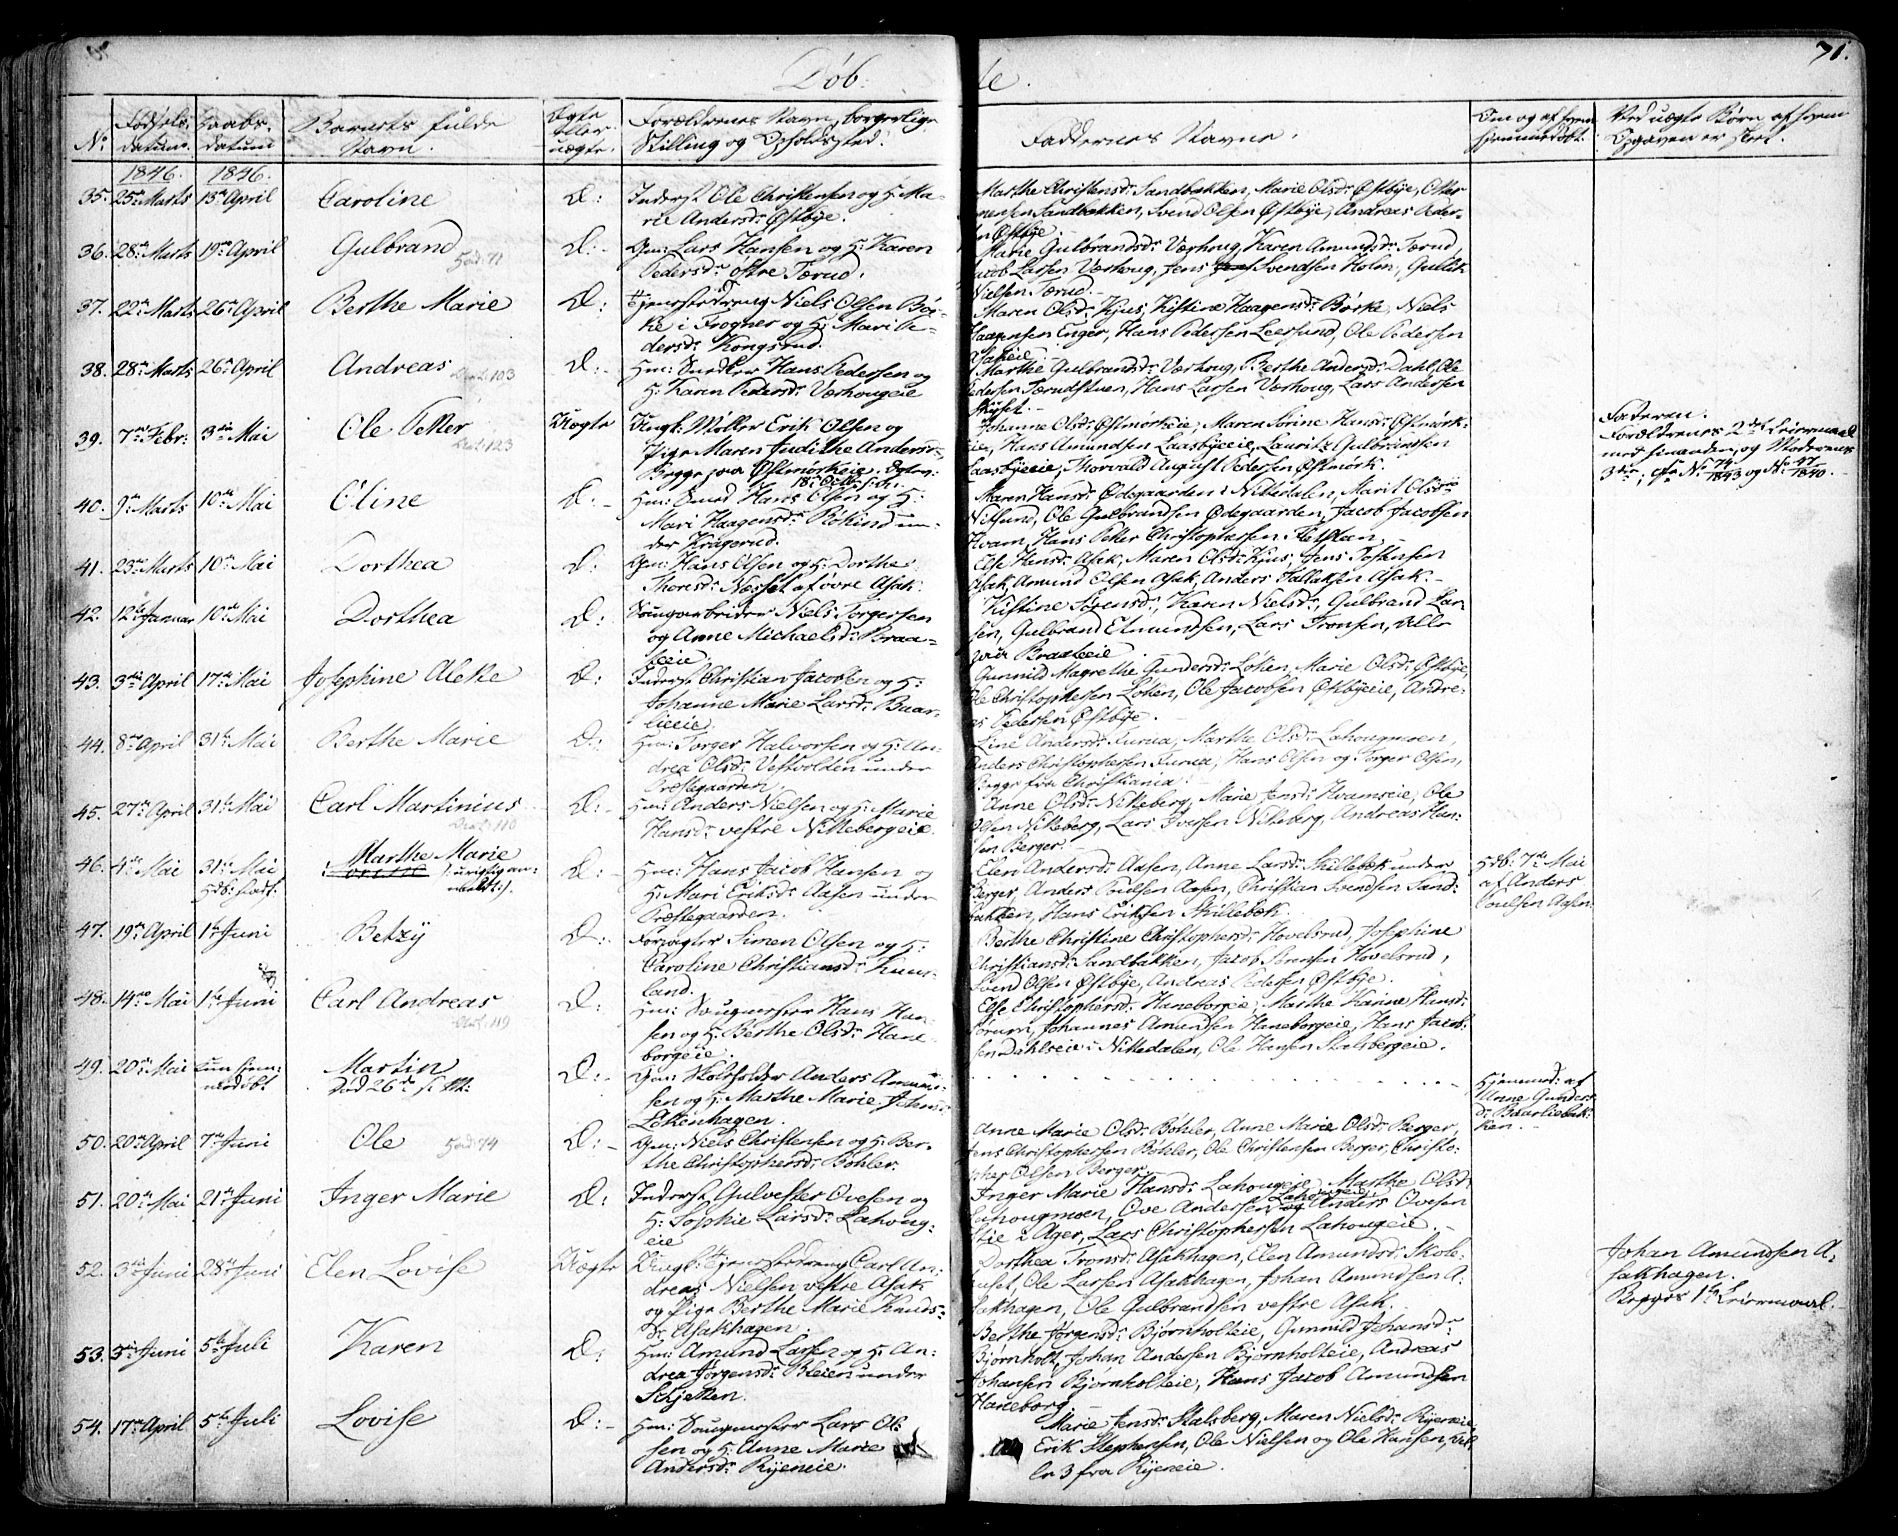 Døb te.
71.
No Fødsels datum. Daabs datum Barnets fulde Navn. Ægte eller uægte. Forældrenes Navn, borgerlige Stilling og Opholdssted. Faddernes Navne. Om og af hvem hjemmedøbt. Ved uægte Børn af hvem Opgaven er skeet.
1846. 1846.
35. 25de Marts 13de April Caroline Æ: Inderst Ole Christensen og H: Ma-
rie Andersdr Østbye.
Marthe Christensdr Sandbakken, Marie Olsdr Østbye,
Sandbakken, Svend Olsen Østbye, Andreas Peder-
sen Østbye.
36. 28de Marts 19de April Gulbrand Æ:- Gm: Lars Hansen og H: Karen
Pedersdr østre Tærud.
Marie Gulbrandsdr Værhoug, Karen Amundsdr Tærud,
Jacob Larsen Værhoug, Jens Svendsen Holm, Gullik
Nielsen Tærud.-
37. 22de Marts 26de April Berthe Marie Æ: Tjenestedreng Niels Olsen Bør-
ke i Frogner og H: Mari Pe-
dersdr Kongsrud.
Maren Olsdr Kjus, Kistine Haagensdr Børke, Niels
Haagensen Enger, Hans Pedersen Leersund, Ole Pedersen
Asakeie.
38. 28de Marts 26de April Andreas Æ:- Hm: Snedker Hans Pedersen og
H: Karen Pedersdr Værhougeie
Marthe Gulbrandsdr Værhoug, Berthe Andersdr Dahl, Ole
Pedersen Tærudstuen, Hans Larsen Værhoug, Lars Andersen
39. 7de Febr: 3die Mai Ole Petter Uægte Ungk: Møller Erik Olsen og
Pige Maren Judithe Andersdr
Begge paa Østmorkeie.
Johanne Olsdr Østmorkeie, Maren Sorine Hansdr Østmork-
eie, Hans Amundsen Laasbyeie, Lauritz Gulbrandsen
Laasbyeie, Thorvald August Pedersen Østmork.
Faderen.
Forældrenes 2det Leiermaal
med hinanden, og Moderens
3die, cfr No 74/1843 og No 47/1840.
40. 9de Marts 10de Mai Oline Æ:- Hm: Smed Hans Olsen og H:
Mari Haagensdr un-
der Kragerud.
Karen Hansdr Ødegaarden i Nittedalen, Marit Olsdr
Nitsund, Ole Gulbrandsen Ødegaarden, Jacob Jacobsen
Hvam, Hans Peter Christophersen
41. 23de Marts 10de Mai Dorthea Æ: Gm: Hans Olsen og H: Dorthe
Thoresdr Næsset af øvre Asak.
Else Hansdr Asak, Maren Olsdr Kjus, Jens Tostensen
Asak, Amund Olsen Asak, Anders Hallaksen Asak.-
42. 12te Januar 10de Mai Dorthea Æ: Saugarbeider Niels Torgersen
og Anne Michaelsdr Braa-
teeie.
Kistine Sørensdr, Karen Nielsdr, Gulbrand Lar-
sen, Gulbrand Elmundsen, Lars Tronsen, Alle
paa Braateeie.
43. 3die April 17de Mai Josephine Aleke Æ: Inderst Christian Jacobsen og H:
Johanne Marie Larsdr Baar-
lieeie.
Gunnild Magrethe Gundersdr Løken, Marie Olsdr Østbye,
Ole Christophersen Løken, Ole Jacobsen Østbyeeie, Andre-
as Pedersen Østbye.
44. 8de April 31te Mai Berthe Marie Æ: Hm: Torger Halvorsen og H: An-
drea Olsdr Vestvolden under
Præstegaarden.
Line Andersdr Furua, Marthe Olsdr Lahougmoen,
Anders Christophersen Furua, Hans Olsen og Torger Olsen,
Begge fra Christiania.
45. 27de April 31te Mai Carl Martinius Æ:- Hm: Anders Nielsen og H: Marie
Hansdr vestre Nikkebergeie.
Anne Olsdr Nikkeberg, Marie Jensdr Hvamseie, Ole
Olsen Nikkeberg, Lars Iversen Nikkeberg, Andreas Han-
sen Berger.
46. 4de Mai 31te Mai Marthe Marie Æ:- Hm: Hans Jacob Hansen og
H: Mari Eriksdr Aasen under
Præstegaarden.
Elen Andersdr Aasen, Anne Larsdr Skillebek under
Berger, Anders Poulsen Aasen, Christian Svendsen Sand-
bakken, Hans Eriksen Skillebek.
Hdb: 7de Mai
af Anders
Poulsen Aasen.
47. 19de April 1ste Juni Betzy Æ: Forpagter Simen Olsen og H:
Caroline Christiansdr
land.
Berthe Christine Christophersdr Hovelsrud, Josephine
Christiansdr Sandbakken, Jacob Hovelsrud,
Svend Olsen Østbye, Andreas Pedersen Østbye.
48. 14de Mai 1ste Juni Carl Andreas Æ: Hm: Saugmester Hans Han-
sen og H: Berthe Olsdr Hane-
borgeie.
Else Christophersdr Haneborgeie, Marthe Karine Hansdr
Sørum, Johannes Amundsen Haneborgeie, Hans Jacob-
sen Dahlseie i Nittedalen, Ole Hansen Stalsbergeie.
49. 20de Mai Kun hjem-
medøbt Martin
Død 26de s. M: Æ:- Gm: Skoleholder Anders Amund-
sen og H: Marthe Marie
Lekenhagen.
Hjemmed: af
Anne Gunders-
dr Baarliebak-
ken.
50. 20de April 7de Juni Ole Æ:- Gm: Niels Christensen og H: Ber-
the Christophersdr Bøhler.
Anne Marie Olsdr Bøhler, Anne Marie Olsdr Berger,
Jens Christophersen Bøhler, Ole Christensen Berger, Christo-
pher Olsen Berger.
51. 20de Mai 21de Juni Inger Marie Æ: Inderst Gulvester Ovesen og
H: Sophie Larsdr Lahoug-
eie
Inger Marie Hansdr Lahougeie, Marthe Olsdr
Lahougmoen, Ove Andersen Lahougeie og Anders Ovesen
i Ager, Lars Christophersen Lahougeie.-
52. 3die Juni 28de Juni Elen Lovise Uægte Ungk: Tjenestedreng Carl An-
dreas Nielsen vestre Asak
og Pige Berthe Marie Knuds-
dr Asakhagen.
Dorthea Tronsdr Asakhagen, Elen Amundsdr Skole-
huset, Ole Larsen Asakhagen, Johan Amundsen A-
sakhagen, Ole Gulbrandsen vestre Asak.
Johan Amundsen A-
sakhagen.
Begges 1ste Leiermaal.
53. 3die Juni 5te Juli Karen Æ: Hm: Amund Larsen og H: An-
drea Jørgensdr Bleien under
Schjetten.
Berthe Jørgensdr Bjørnholteie, Gunnild Johansdr
Bjørnholt, Johan Andersen Bjørnholteie, Andreas
Johansen Bjørnholteie, Hans Jacob Amundsen
Haneborg.
54. 17de April 5te Juli Lovise Æ:- Hm: Saugmester Lars Ol-
sen og H: Anne Marie
Andersdr Ryeneie.
Marie Jensdr Stalsberg, Maren Nielsdr Ryeneie,
Erik Stephensen, Ole Nielsen og Ole Hansen, Al-
le 3 fra Ryeneie.